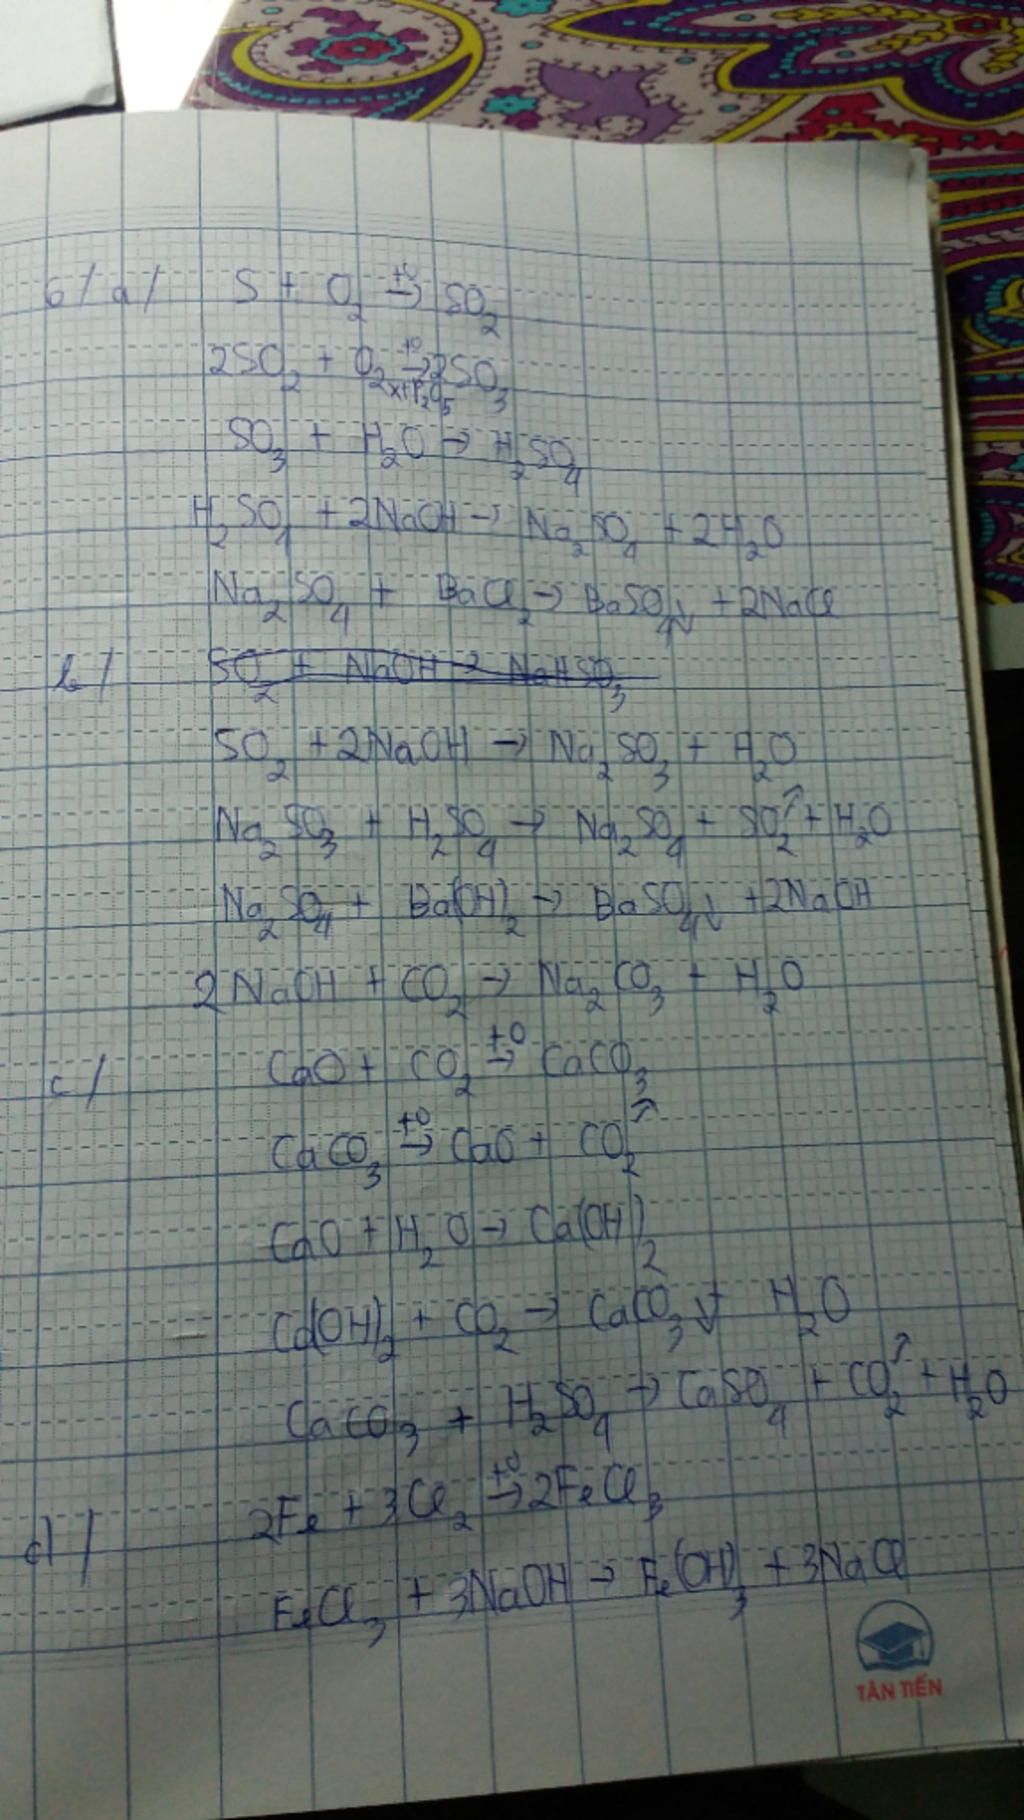 6/ a/ S + O₂ t⁰→ SO₂
2SO₂ + O₂ t⁰→ xt P₂O₅ 2SO₃
SO₃ + H₂O → H₂SO₄
H₂SO₄ + 2NaOH → Na₂SO₄ + 2H₂O
Na₂SO₄ + BaCl₂ → BaSO₄↓ + 2NaCl
b/ SO₂ + NaOH → NaHSO₃
SO₂ + 2NaOH → Na₂SO₃ + H₂O
Na₂SO₃ + H₂SO₄ → Na₂SO₄ + SO₂↑ + H₂O
Na₂SO₄ + Ba(OH)₂ → BaSO₄↓ + 2NaOH
2NaOH + CO₂ → Na₂CO₃ + H₂O
c/ CaO + CO₂ t⁰→ CaCO₃
CaCO₃ t⁰→ CaO + CO₂↑
CaO + H₂O → Ca(OH)₂
Ca(OH)₂ + CO₂ → CaCO₃↓ + H₂O
CaCO₃ + H₂SO₄ → CaSO₄ + CO₂↑ + H₂O
d/ 2Fe + 3Cl₂ t⁰→ 2FeCl₃
FeCl₃ + 3NaOH → Fe(OH)₃ + 3NaCl
TÂN TIẾN